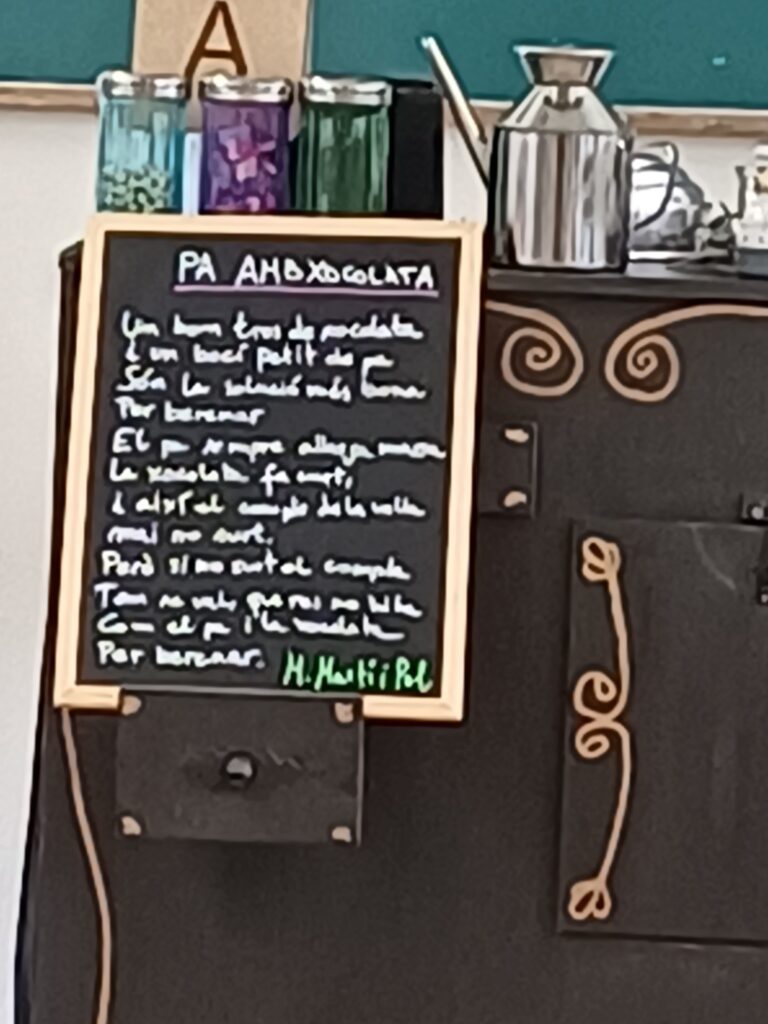 A
PA AMB XOCOLATA
Un bon tros de xocolata
i un bocí petit de pa
Són la solució més bona
Per berenar
El pa sempre allarga massa
La xocolata fa curt,
i així el compte de la vella
mai no surt.
Però si no surt el compte
Tan se val, que res no hi ha
Com el pa i la xocolata
Per berenar.
M. Martí i Pol